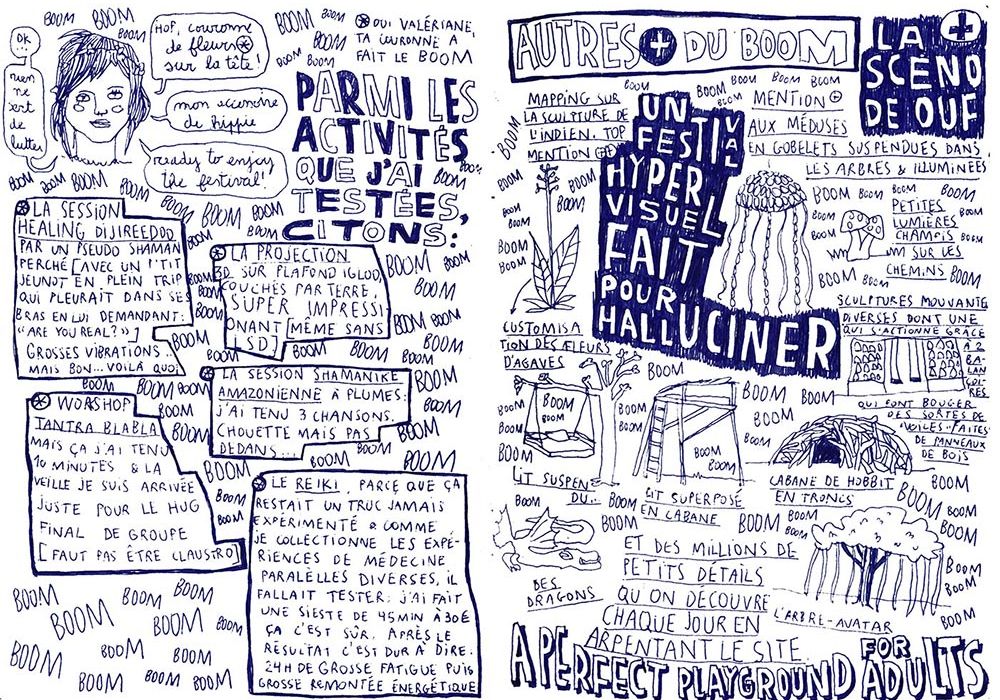 OK...
rien
ne
sert
de
lutter
HOP, couronne
de fleurs
sur la tête!
mon exemdre
de hippie
ready to enjoy
the festival!
OUI VALÉRIANE,
TA COURONNE A
FAIT LE BOOM
PARMI LES
ACTIVITÉS
QUE J'AI
TESTÉES,
CITONS:
LA SESSION
HEALING DIJIREEDOO
PAR UN PSEUDO SHAMAN
PERCHÉ [AVEC UN P'TIT
JEUNOT EN PLEIN TRIP
QUI PLEURAIT DANS SES
BRAS EN LUI DEMANDANT:
"ARE YOU REAL?"]
GROSSES VIBRATIONS...
MAIS BON... VOILÀ QUOI
LA PROJECTION
3D SUR PLAFOND IGLOO,
COUCHÉS PAR TERRE,
SUPER IMPRESSI
ONANT [MÊME SANS
LSD]
LA SESSION SHAMANIKE
AMAZONIENNE À PLUMES:
J'AI TENU 3 CHANSONS.
CHOUETTE MAIS PAS
DEDANS...
WORKSHOP
TANTRA BLABLA
MAIS ÇA J'AI TENU
10 MINUTES & LA
VEILLE JE SUIS ARRIVÉE
JUSTE POUR LE HUG
FINAL DE GROUPE
[FAUT PAS ÊTRE CLAUSTRO]
LE REIKI, PARCE QUE ÇA
RESTAIT UN TRUC JAMAIS
EXPÉRIMENTÉ & COMME
JE COLLECTIONNE LES EXPÉ-
RIENCES DE MÉDECINE
PARALÈLLES DIVERSES, IL
FALLAIT TESTER: J'AI FAIT
UNE SIESTE DE 45MIN À 30€
ÇA C'EST SÛR. APRÈS LE
RÉSULTAT C'EST DUR À DIRE.
24H DE GROSSE FATIGUE PUIS
GROSSE REMONTÉE ÉNERGÉTIQUE
BOOM BOOM BOOM BOOM
BOOM BOOM BOOM BOOM
BOOM BOOM BOOM BOOM
AUTRES + DU BOOM
LA +
SCENO
DE OUF
MAPPING SUR
LA SCULPTURE DE
L'INDIEN. TOP
MENTION ++
UN
FESTIVAL
HYPER
VISUEL
FAIT
POUR
HALLUCINER
MENTION +
AUX MÉDUSES
EN GOBELETS SUSPENDUES DANS
LES ARBRES & ILLUMINÉES
PETITES
LUMIÈRES
CHAMPIS
SUR LES
CHEMINS
CUSTOMISA
TION DES FLEURS
D'AGAVES
SCULPTURES MOUVANTE
DIVERSES DONT UNE
QUI S'ACTIONNE GRÂCE
À 2
BA-
LAN
ÇOI-
RES
QUI FONT BOUGER
DES SORTES DE
"VOILES" FAITES
DE PANNEAUX
DE BOIS
LIT SUSPEN
DU..
LIT SUPERPOSÉ
EN CABANE
CABANE DE HOBBIT
EN TRONCS
DES
DRAGONS
L'ARBRE-AVATAR
ET DES MILLIONS DE
PETITS DÉTAILS
QU'ON DÉCOUVRE
CHAQUE JOUR EN
ARPENTANT LE SITE.
A PERFECT PLAYGROUND FOR ADULTS
BOOM BOOM BOOM BOOM
BOOM BOOM BOOM BOOM